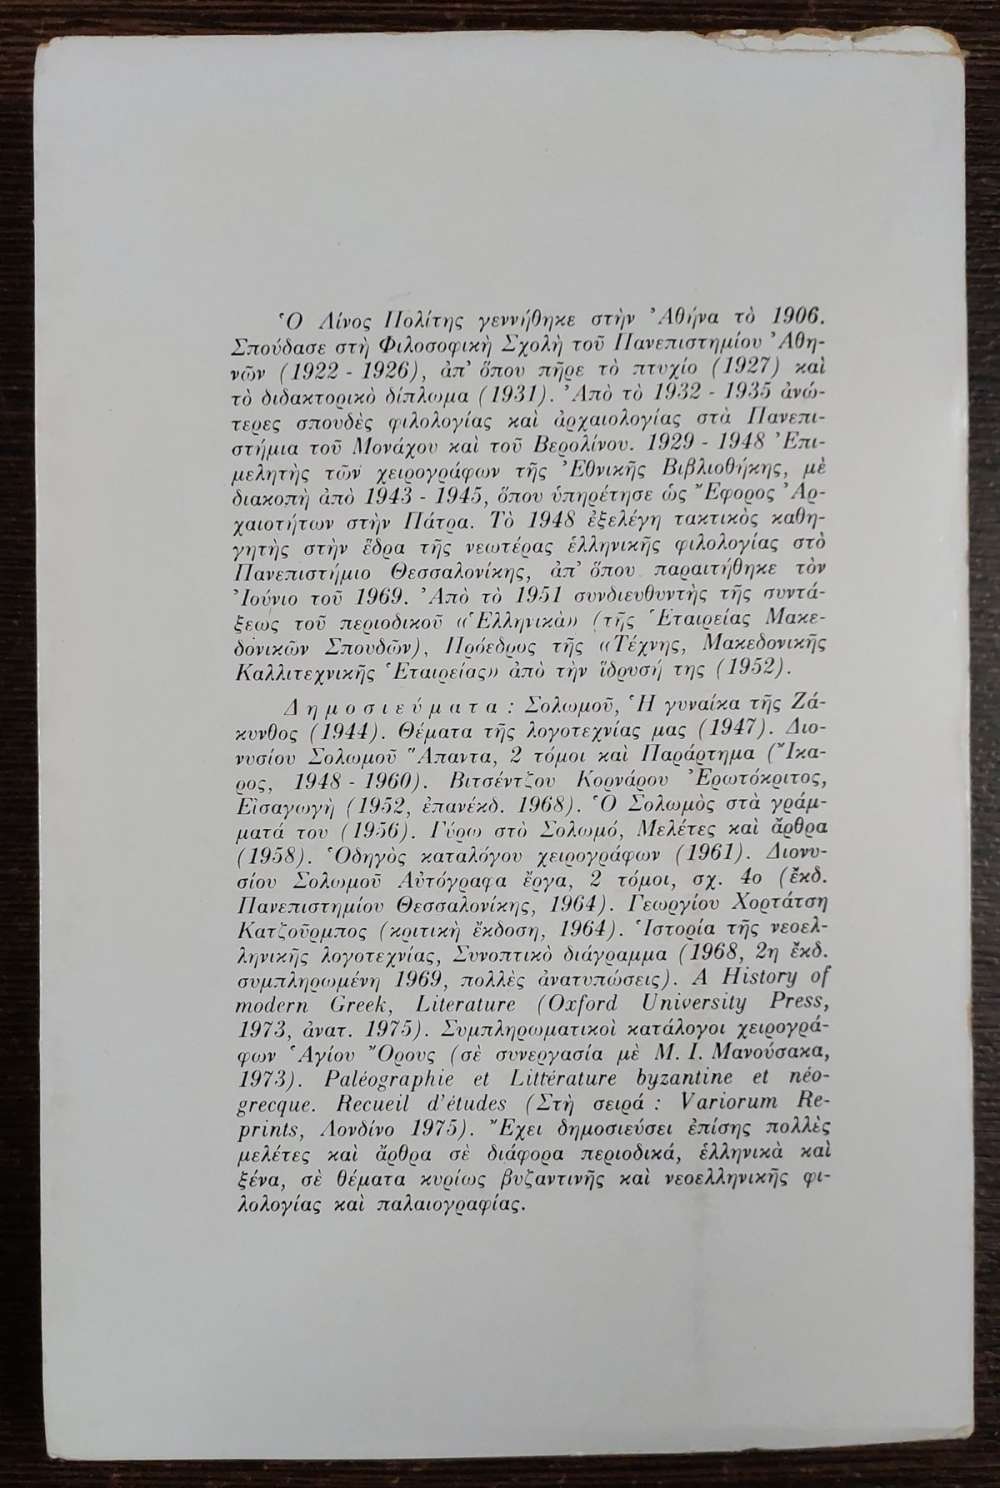 Ὁ Λίνος Πολίτης γεννήθηκε στὴν Ἀθήνα τὸ 1906.
Σπούδασε στὴ Φιλοσοφικὴ Σχολὴ τοῦ Πανεπιστημίου Ἀθη-
νῶν (1922 - 1926), ἀπ' ὅπου πῆρε τὸ πτυχίο (1927) καὶ
τὸ διδακτορικὸ δίπλωμα (1931). Ἀπὸ τὸ 1932 - 1935 ἀνώ-
τερες σπουδὲς φιλολογίας καὶ ἀρχαιολογίας στὰ Πανεπι-
στήμια τοῦ Μονάχου καὶ τοῦ Βερολίνου. 1929 - 1948 Ἐπι-
μελητὴς τῶν χειρογράφων τῆς Ἐθνικῆς Βιβλιοθήκης, μὲ
διακοπὴ ἀπὸ 1943 - 1945, ὅπου ὑπηρέτησε ὡς Ἔφορος Ἀρ-
χαιοτήτων στὴν Πάτρα. Τὸ 1948 ἐξελέγη τακτικὸς καθη-
γητὴς στὴν ἕδρα τῆς νεωτέρας ἑλληνικῆς φιλολογίας στὸ
Πανεπιστήμιο Θεσσαλονίκης, ἀπ' ὅπου παραιτήθηκε τὸν
Ἰούνιο τοῦ 1969. Ἀπὸ τὸ 1951 συνδιευθυντὴς τῆς συντά-
ξεως τοῦ περιοδικοῦ «Ἑλληνικὰ» (τῆς Ἑταιρείας Μακε-
δονικῶν Σπουδῶν), Πρόεδρος τῆς «Τέχνης, Μακεδονικῆς
Καλλιτεχνικῆς Ἑταιρείας» ἀπὸ τὴν ἵδρυσή της (1952).
Δημοσιεύματα: Σολωμοῦ, Ἡ γυναίκα τῆς Ζά-
κυνθος (1944). Θέματα τῆς λογοτεχνίας μας (1947). Διο-
νυσίου Σολωμοῦ Ἅπαντα, 2 τόμοι καὶ Παράρτημα (Ἴκα-
ρος, 1948 - 1960). Βιτσέντζου Κορνάρου Ἐρωτόκριτος,
Εἰσαγωγὴ (1952, ἐπανέκδ. 1968). Ὁ Σολωμὸς στὰ γράμ-
ματά του (1956). Γύρω στὸ Σολωμό, Μελέτες καὶ ἄρθρα
(1958). Ὁδηγὸς καταλόγου χειρογράφων (1961). Διονυ-
σίου Σολωμοῦ Αὐτόγραφα ἔργα, 2 τόμοι, σχ. 4ο (ἔκδ.
Πανεπιστημίου Θεσσαλονίκης, 1964). Γεωργίου Χορτάτση
Κατζοῦρμπος (κριτικὴ ἔκδοση, 1964). Ἱστορία τῆς νεοελ-
ληνικῆς λογοτεχνίας, Συνοπτικὸ διάγραμμα (1968, 2η ἔκδ.
συμπληρωμένη 1969, πολλὲς ἀνατυπώσεις). A History of
modern Greek, Literature (Oxford University Press,
1973, ἀνατ. 1975). Συμπληρωματικοὶ κατάλογοι χειρογρά-
φων Ἁγίου Ὄρους (σὲ συνεργασία μὲ Μ. Ι. Μανούσακα,
1973). Paléographie et Littérature byzantine et néo-
grecque. Recueil d'études (Στὴ σειρά : Variorum Re-
prints, Λονδίνο 1975). Ἔχει δημοσιεύσει ἐπίσης πολλὲς
μελέτες καὶ ἄρθρα σὲ διάφορα περιοδικά, ἑλληνικὰ καὶ
ξένα, σὲ θέματα κυρίως βυζαντινῆς καὶ νεοελληνικῆς φι-
λολογίας καὶ παλαιογραφίας.